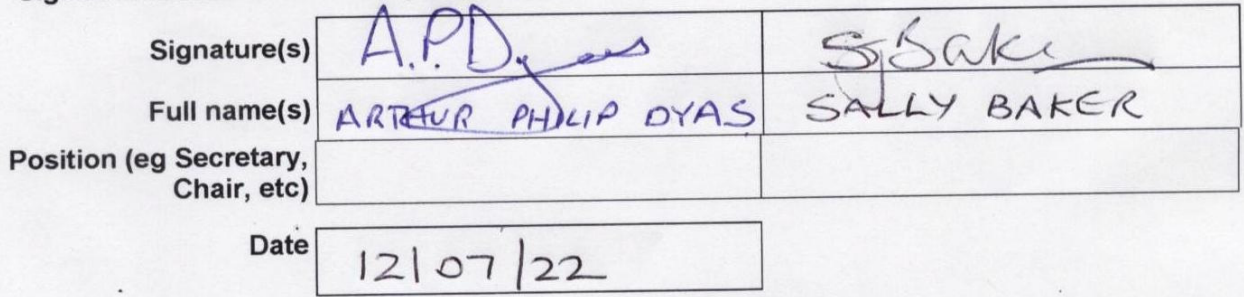 Signature(s) A.P.Dyas S Baker
Full name(s) ARTHUR PHILIP DYAS SALLY BAKER
Position (eg Secretary,
Chair, etc)
Date 12/07/22